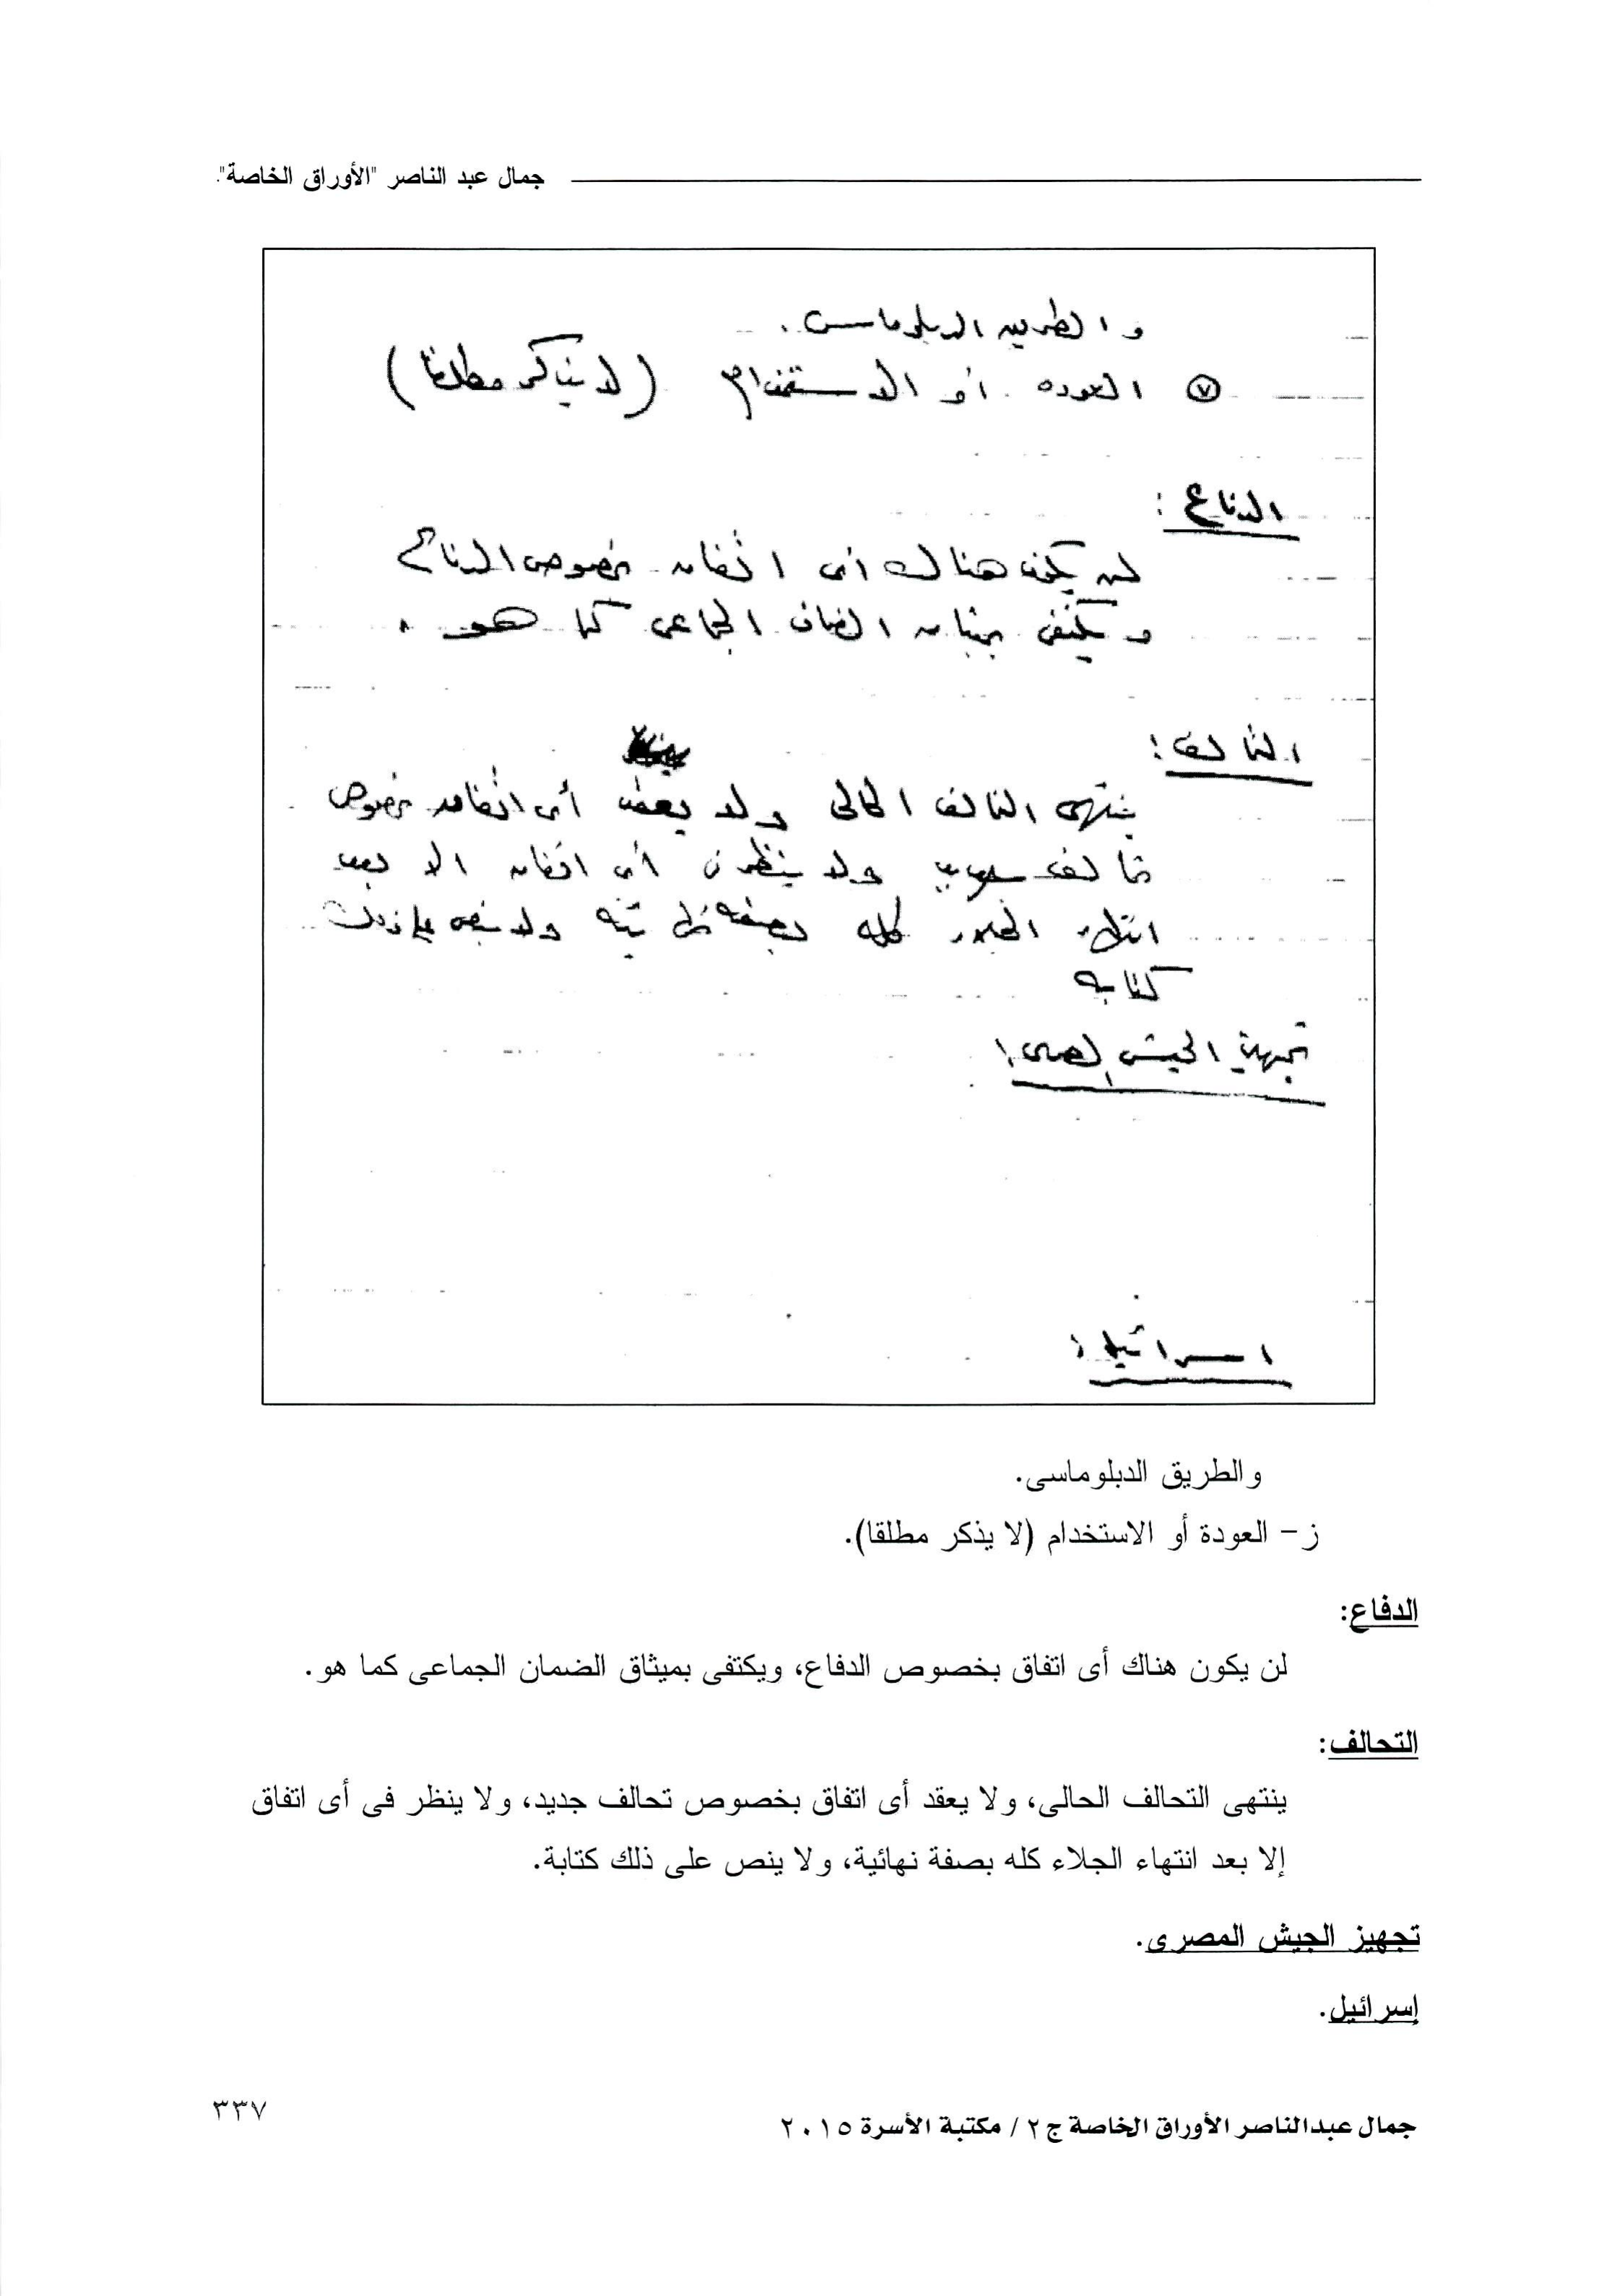 جمال عبد الناصر "الأوراق الخاصة".
والطريق الدبلوماسى.
٧ العوده أو الاستخدام (لا يذكر مطلقا)
الدفاع:
لن يكون هناك أى اتفاق بخصوص الدفاع
ويكتفى بميثاق الضمان الجماعى كما هو.
التحالف:
ينتهى التحالف الحالى ولا يعقد أى اتفاق بخصوص
تحالف جديد ولا ينظر فى أى اتفاق الا بعد
انتهاء الجلاء كله بصفه نهائيه ولا ينص على ذلك
كتابه
تجهيز الجيش المصرى:
اسرائيل:
والطريق الدبلوماسى.
ز- العودة أو الاستخدام (لا يذكر مطلقا).
الدفاع:
لن يكون هناك أى اتفاق بخصوص الدفاع، ويكتفى بميثاق الضمان الجماعى كما هو.
التحالف:
ينتهى التحالف الحالى، ولا يعقد أى اتفاق بخصوص تحالف جديد، ولا ينظر فى أى اتفاق
إلا بعد انتهاء الجلاء كله بصفة نهائية، ولا ينص على ذلك كتابة.
تجهيز الجيش المصرى.
إسرائيل.
جمال عبدالناصر الأوراق الخاصة ج٢ / مكتبة الأسرة ٢٠١٥
٣٣٧